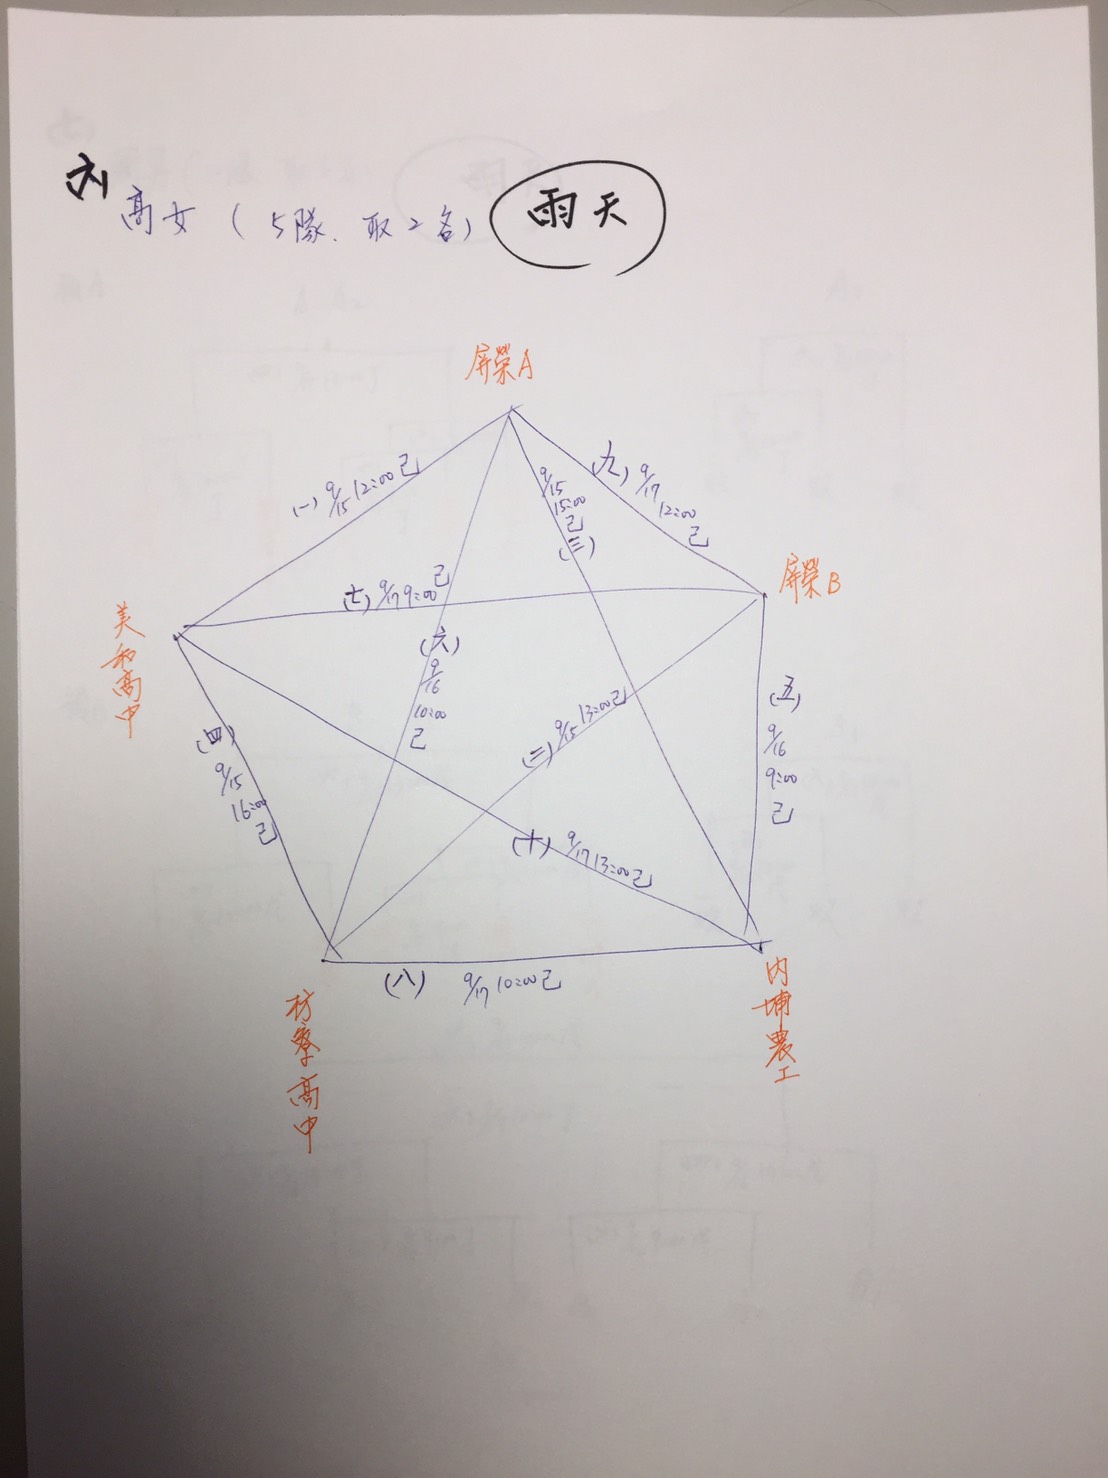 六
高女（5隊、取2名） 雨天
屏榮A
(一) 9/15 12:00 己
(九) 9/17
12:00
己
9/15
15:00
己
(三)
屏榮B
(七) 9/17 9:00 己
美和高中
(六)
9/16
10:00
己
(二) 9/15 13:00 己
(五)
9/16
9:00
己
(四)
9/15
16:00
己
(十) 9/17 13:00 己
(八) 9/17 10:00 己
枋寮高中
內埔農工